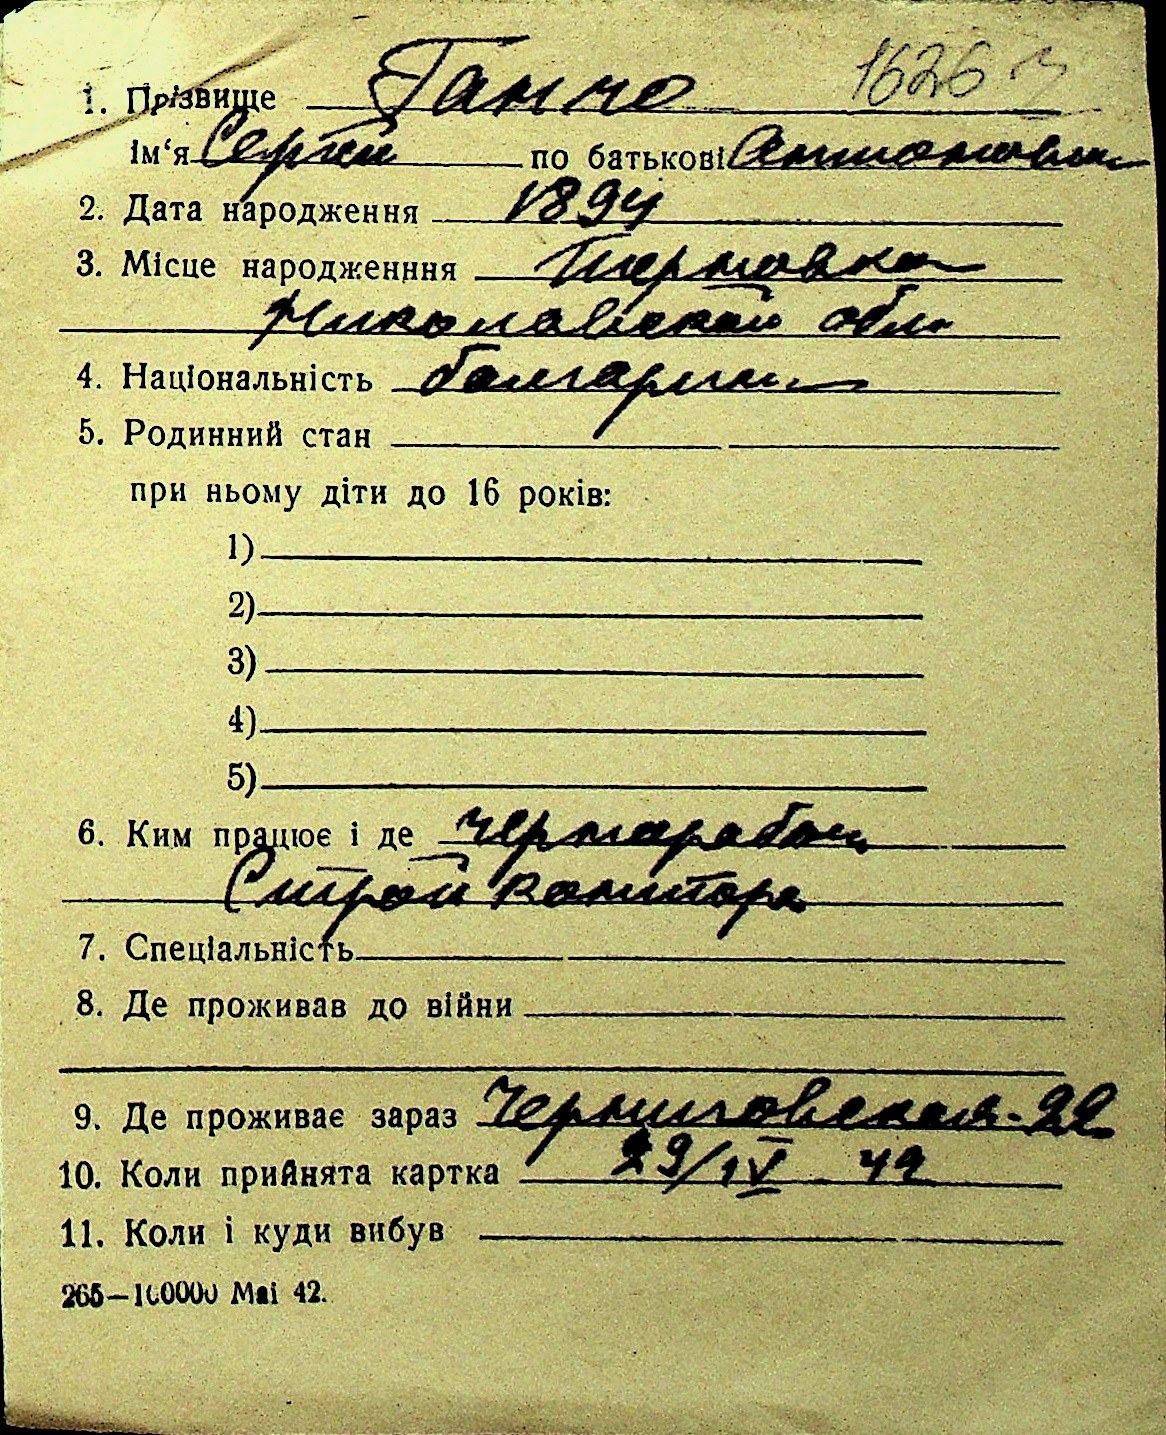 1626
1. Прізвище Ганчо
ім‘я Сергей по батькові Антонович
2. Дата народження 1894
3. Місце народженння Терновка
Николаевской обл.
4. Національність болгарин
5. Родинний стан
при ньому діти до 16 років:
1)
2)
3)
4)
5)
6. Ким працює і де чернорабоч.
Строй контора
7. Спеціальність
8. Де проживав до війни
9. Де проживає зараз Черниговская-22
10. Коли прийнята картка 29/IV 42
11. Коли і куди вибув
265—100000 Маі 42.